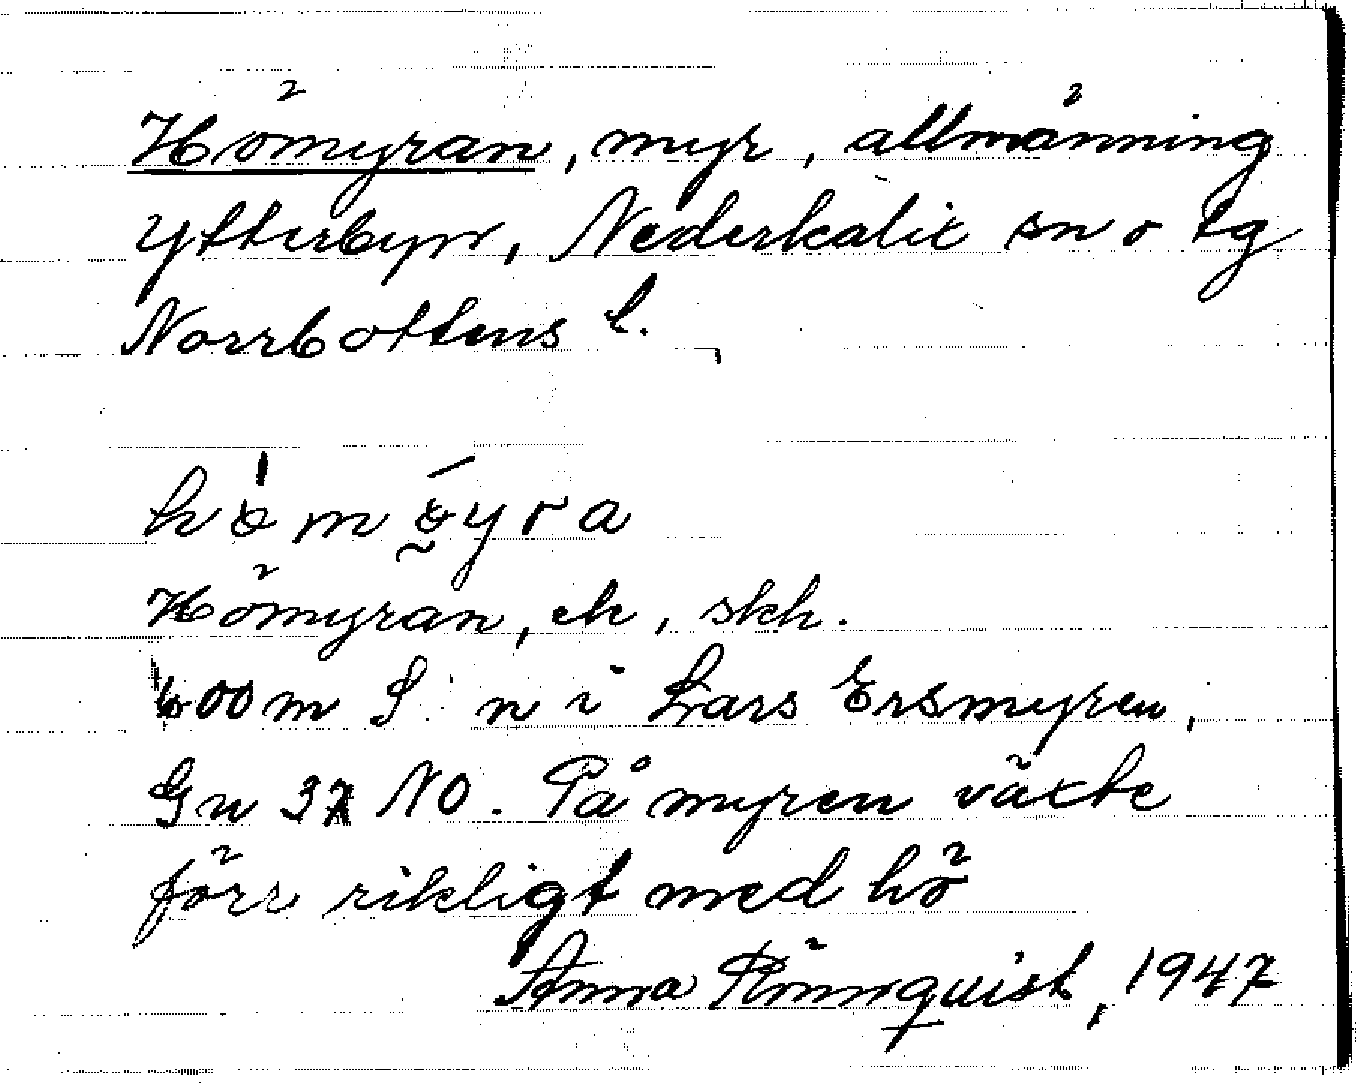 Hömyran, myr, allmänning
Ytterbyn, Nederkalix sn o tg
Norrbottens l.
Hömyran, ek, skh.
600 m S n i Lars Ersmyren,
Gn 37 NO. På myren växte
förr rikligt med hö
Anna Rönnquist, 1947